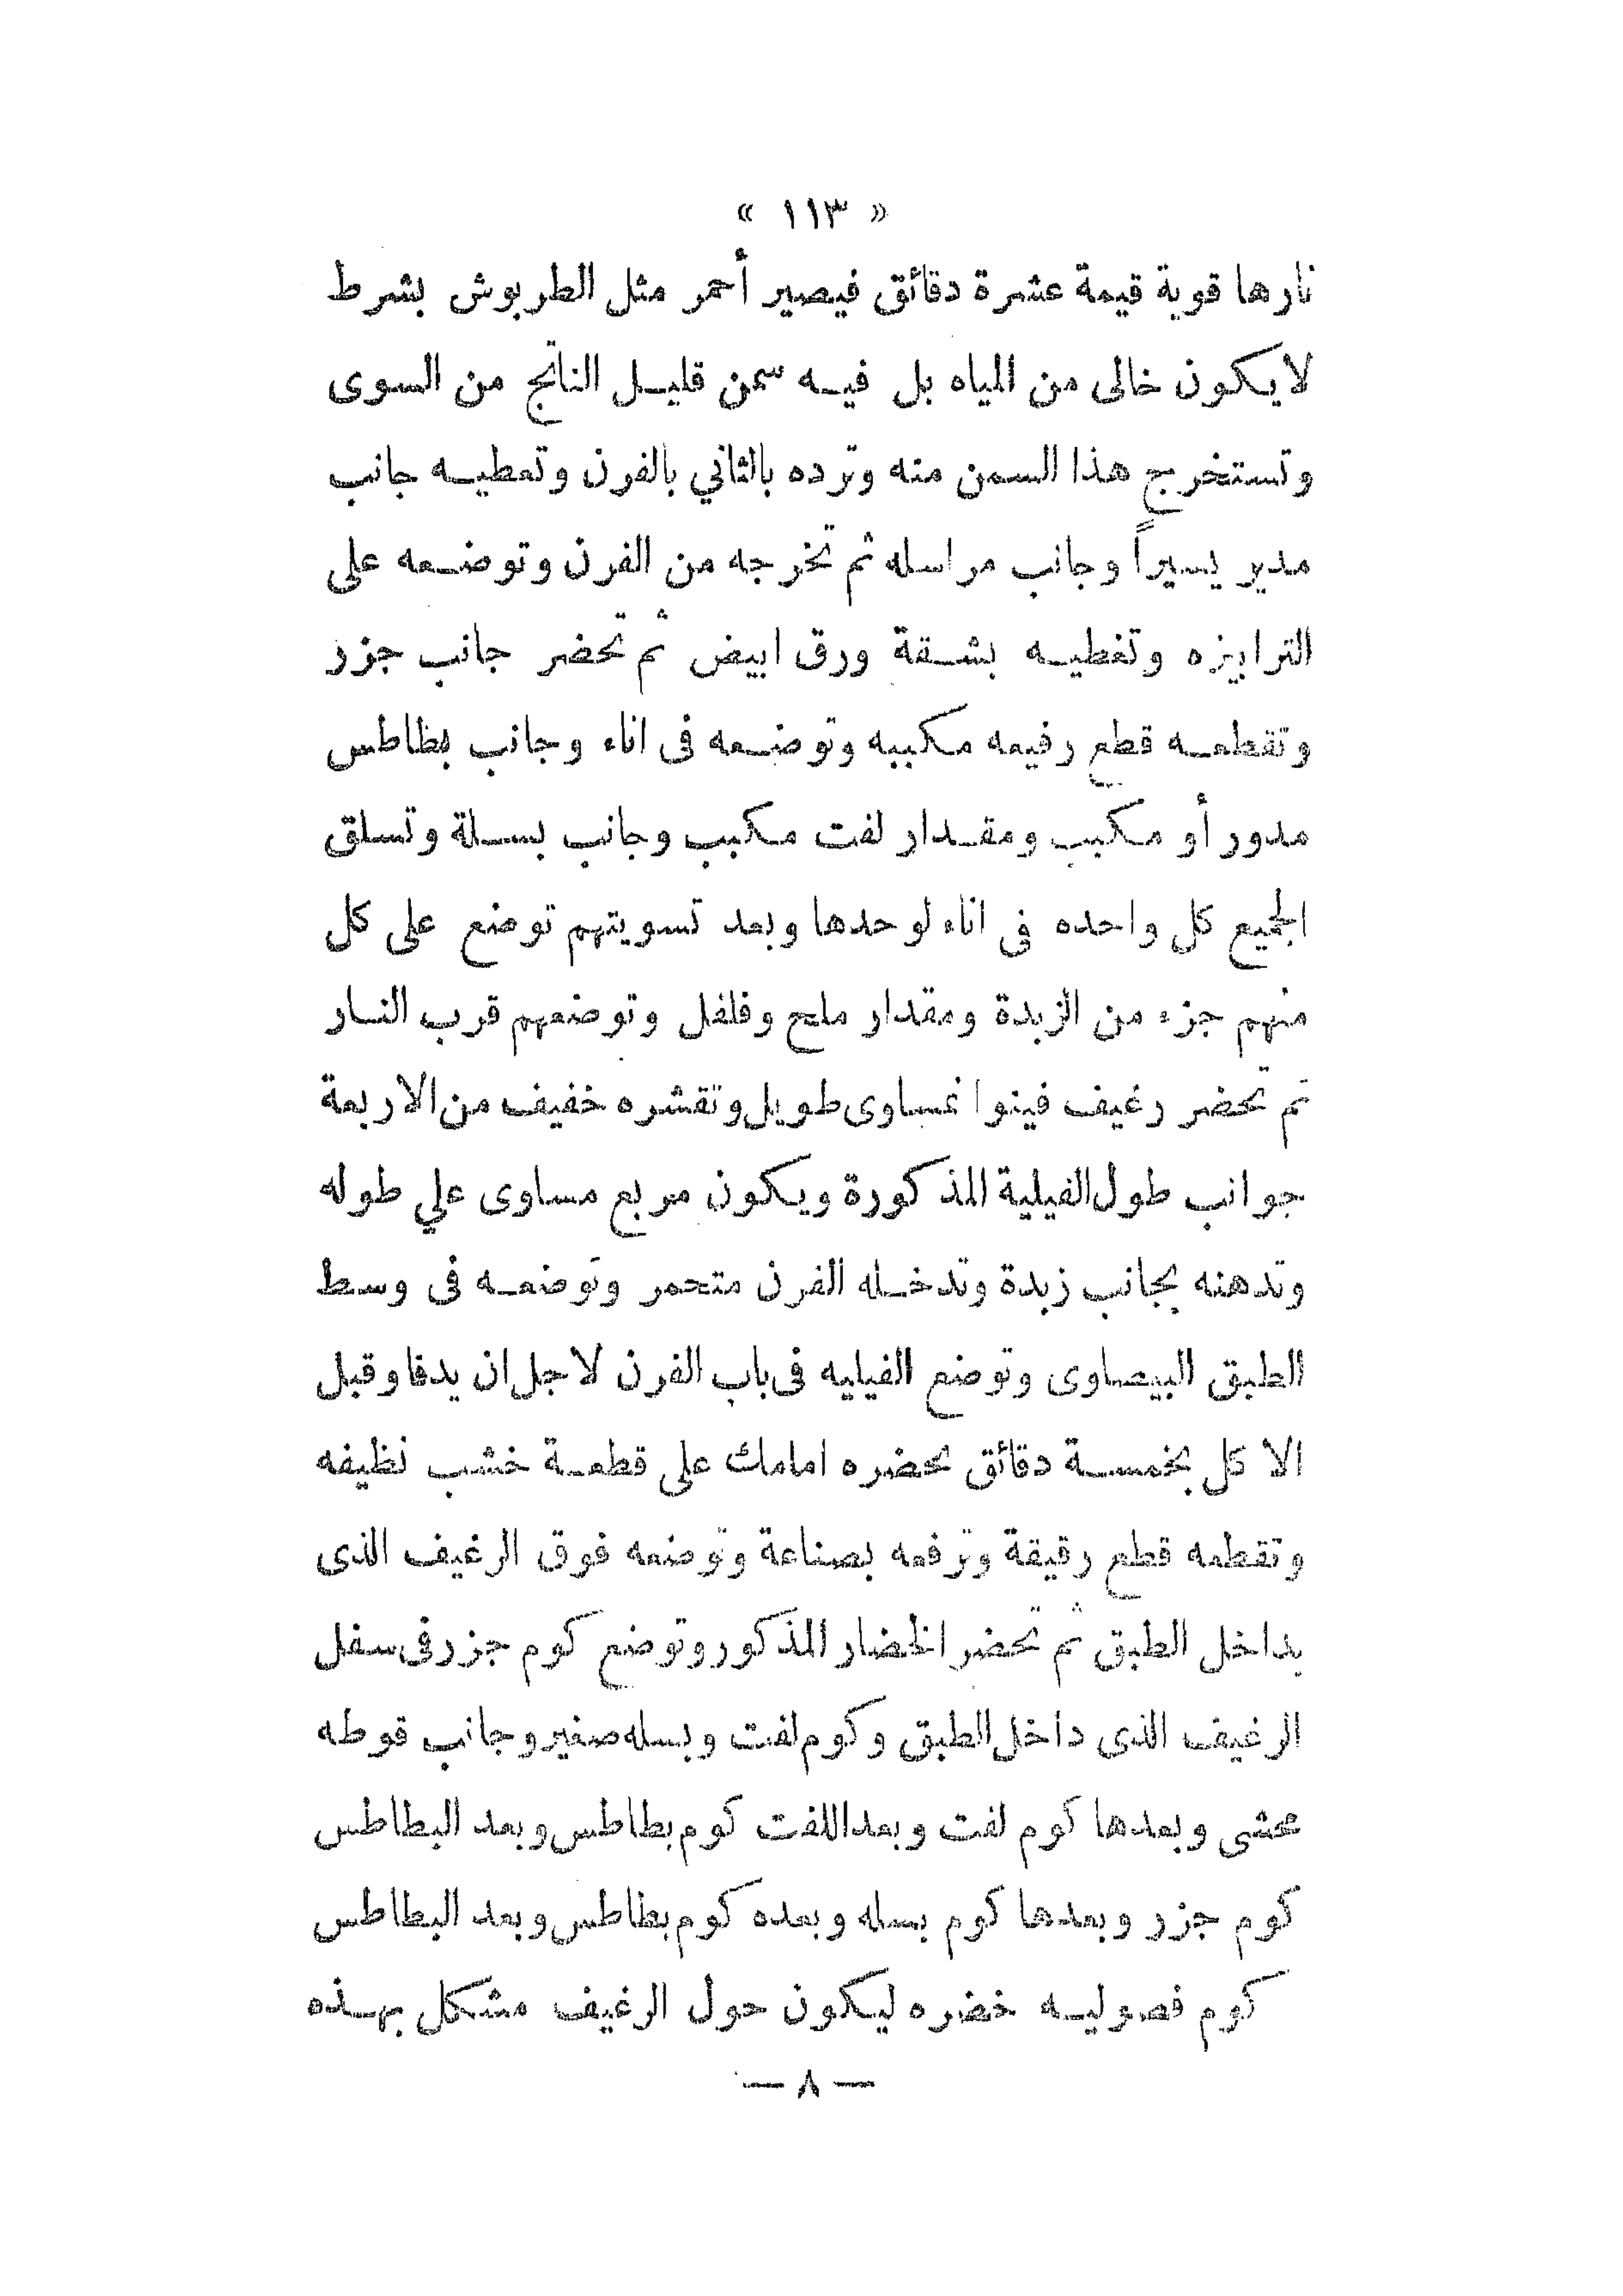 « ١١٣ »
نارها قوية قيمة عشرة دقائق فيصير أحمر مثل الطربوش بشرط
لايكون خالى من المياه بل فيه سمن قليل الناتج من السوى
وتستخرج هذا السمن منه وترده بالثاني بالفرن وتعطيه جانب
مدير يسيراً وجانب مراسله ثم تخرجه من الفرن وتوضعه على
الترابيزه وتغطيه بشقة ورق ابيض ثم تحضر جانب جزر
وتقطعه قطع رفيعه مكببه وتوضعه فى اناء وجانب بطاطس
مدور أو مكبب ومقدار لفت مكبب وجانب بسلة وتسلق
الجميع كل واحده في اناء لوحدها وبعد تسويتهم توضع على كل
منهم جزء من الزبدة ومقدار ملح وفلفل وتوضعهم قرب النار
ثم تحضر رغيف فينوا نمساوى طويل وتقشره خفيف من الاربعة
جوانب طول الفيلية المذكورة ويكون مربع مساوى علي طوله
وتدهنه بجانب زبدة وتدخله الفرن متحمر وتوضعه فى وسط
الطبق البيضاوى وتوضع الفيليه فى باب الفرن لاجل ان يدفا وقبل
الاكل بخمسة دقائق تحضره امامك على قطعة خشب نظيفه
وتقطعه قطع رقيقة وترفعه بصناعة وتوضعه فوق الرغيف الذى
بداخل الطبق ثم تحضر الخضار المذكور وتوضع كوم جزر فى سفل
الرغيف الذى داخل الطبق وكوم لفت وبسله صغير وجانب قوطه
محشى وبعدها كوم لفت وبعد اللفت كوم بطاطس وبعد البطاطس
كوم جزر وبعدها كوم بسله وبعده كوم بطاطس وبعد البطاطس
كوم فصوليه خضره ليكون حول الرغيف مشكل بهذه
— ٨ —